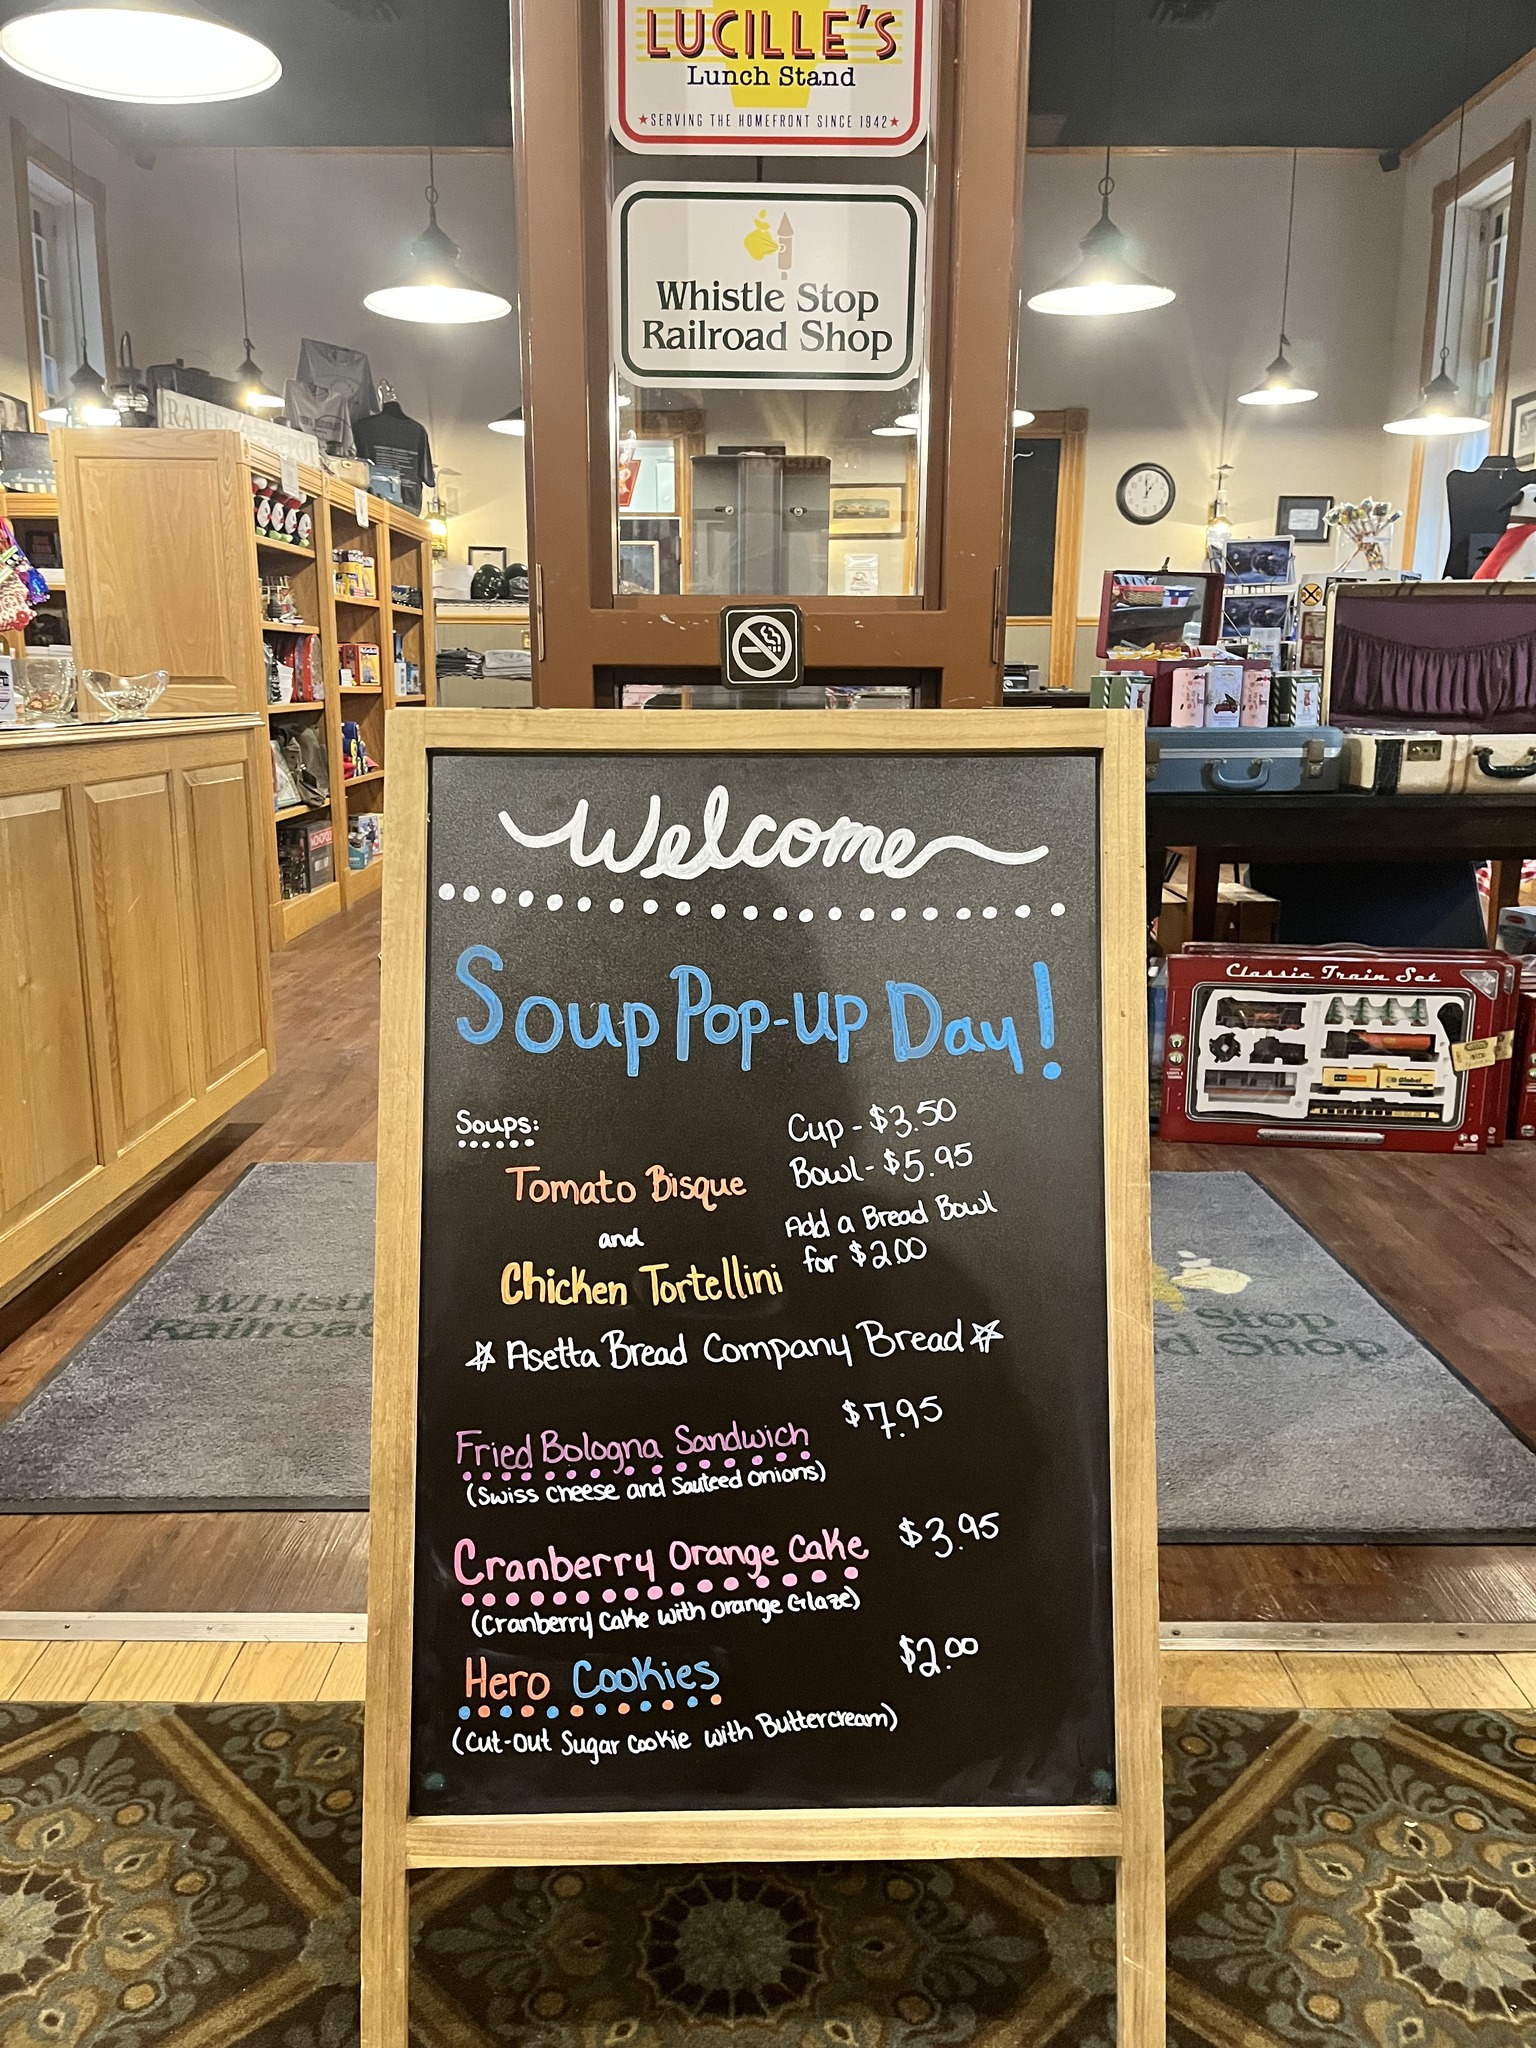 LUCILLE'S
Lunch Stand
★SERVING THE HOMEFRONT SINCE 1942★
Whistle Stop
Railroad Shop
Welcome
Soup Pop-up Day!
Soups:
Cup - $3.50
Bowl - $5.95
Tomato Bisque
Add a Bread Bowl
for $2.00
and
Chicken Tortellini
☆ Asetta Bread Company Bread ☆
Fried Bologna Sandwich $7.95
(Swiss cheese and Sauteed onions)
Cranberry Orange Cake $3.95
(Cranberry Cake with Orange Glaze)
Hero Cookies $2.00
(Cut-out Sugar cookie with Buttercream)
Classic Train Set
Global
MONOPOLY
Railroad
Stop
Shop